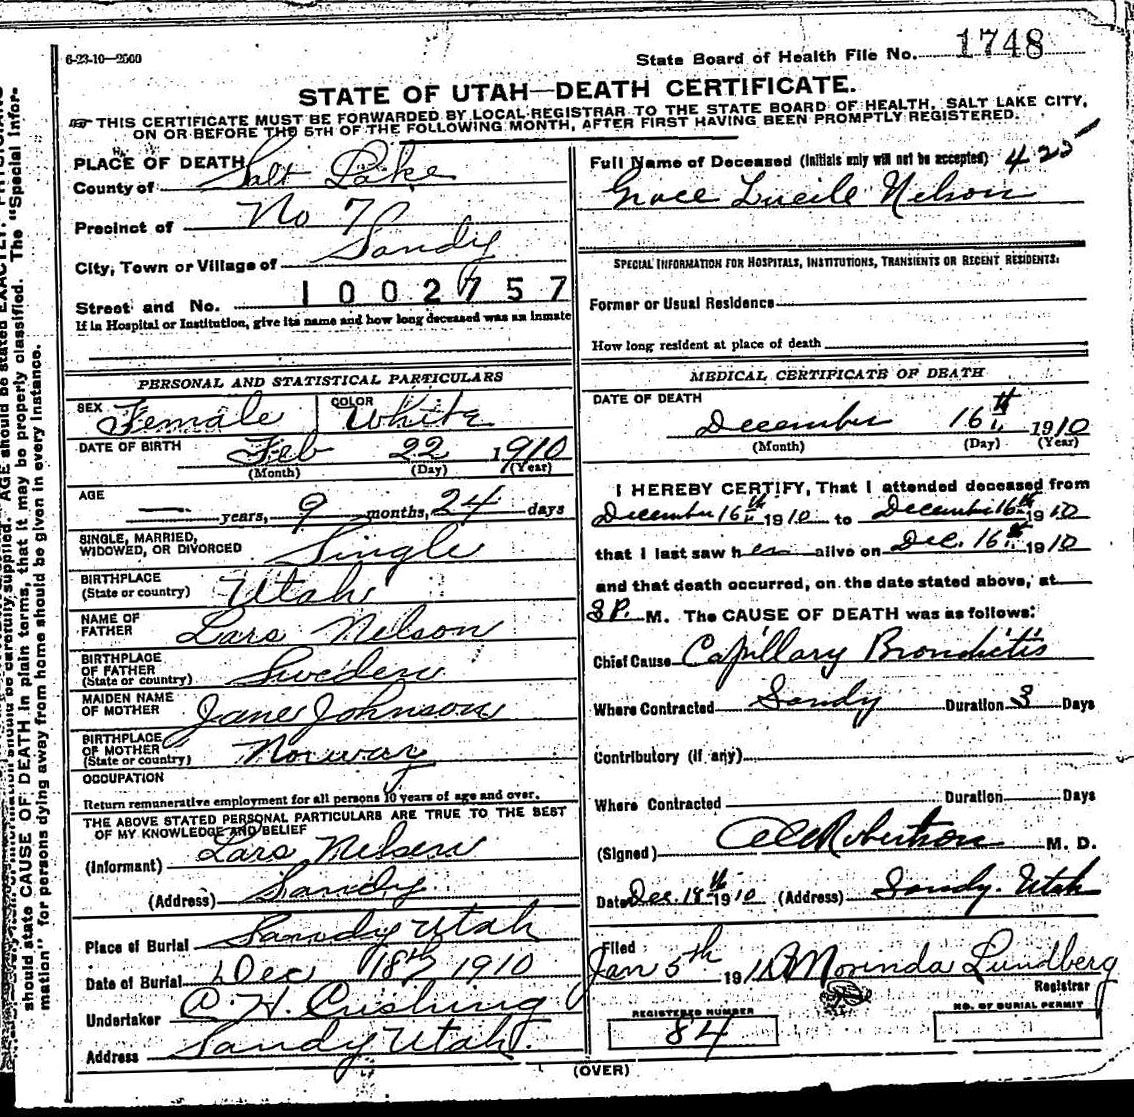 6-23-10—2500
State Board of Health File No. 1748
STATE OF UTAH—DEATH CERTIFICATE.
THIS CERTIFICATE MUST BE FORWARDED BY LOCAL REGISTRAR TO THE STATE BOARD OF HEALTH, SALT LAKE CITY,
ON OR BEFORE THE 5TH OF THE FOLLOWING MONTH, AFTER FIRST HAVING BEEN PROMPTLY REGISTERED.
PLACE OF DEATH
County of Salt Lake
Precinct of No 7
City, Town or Village of Sandy
Street and No. 1002757
If in Hospital or Institution, give its name and how long deceased was an inmate
PERSONAL AND STATISTICAL PARTICULARS
SEX Female COLOR White
DATE OF BIRTH Feb 22 1910
(Month) (Day) (Year)
AGE
— years, 9 months, 24 days
SINGLE, MARRIED,
WIDOWED, OR DIVORCED Single
BIRTHPLACE
(State or country) Utah
NAME OF
FATHER Lars Nelson
BIRTHPLACE
OF FATHER
(State or country) Sweden
MAIDEN NAME
OF MOTHER Jane Johnson
BIRTHPLACE
OF MOTHER
(State or country) Norway
OCCUPATION
Return remunerative employment for all persons 10 years of age and over.
THE ABOVE STATED PERSONAL PARTICULARS ARE TRUE TO THE BEST
OF MY KNOWLEDGE AND BELIEF
(Informant) Lars Nelson
(Address) Sandy
Place of Burial Sandy Utah
Date of Burial Dec 18th 1910
Undertaker C. H. Cushing
Address Sandy Utah.
Full Name of Deceased (Initials only will not be accepted) 425
Grace Lucile Nelson
SPECIAL INFORMATION FOR HOSPITALS, INSTITUTIONS, TRANSIENTS OR RECENT RESIDENTS:
Former or Usual Residence
How long resident at place of death
MEDICAL CERTIFICATE OF DEATH
DATE OF DEATH
December 16th 1910
(Month) (Day) (Year)
I HEREBY CERTIFY, That I attended deceased from
December 16th 1910 to December 16th 1910
that I last saw her alive on Dec. 16th 1910
and that death occurred, on the date stated above, at
3 P. M. The CAUSE OF DEATH was as follows:
Chief Cause Capillary Bronchitis
Where Contracted Sandy Duration 3 Days
Contributory (if any)
Where Contracted Duration Days
(Signed) Robertson M. D.
Date Dec. 18th 1910 (Address) Sandy. Utah
Filed
Jan 5th 1911 Morinda Lundberg
Registrar
REGISTERED NUMBER
84
NO. OF BURIAL PERMIT
(OVER)
should be carefully supplied. AGE should be stated EXACTLY.
should state CAUSE OF DEATH in plain terms, that it may be properly classified. The "Special Infor-
mation" for persons dying away from home should be given in every instance.